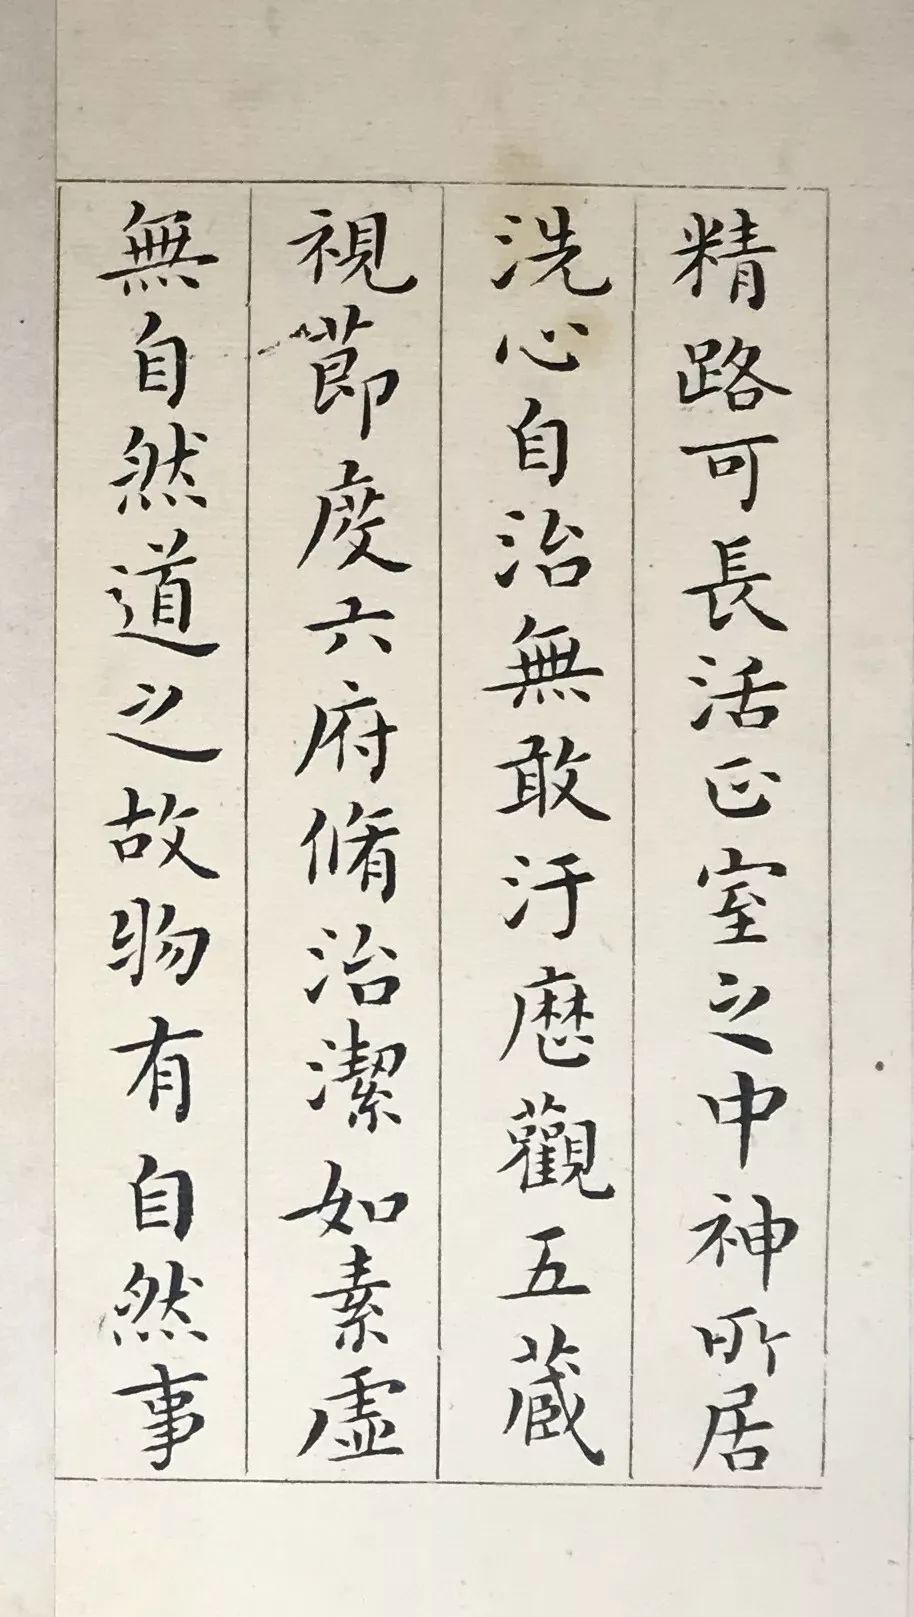 精路可長活正室之中神所居
洗心自治無敢汙歷觀五藏
視節度六府脩治潔如素虛
無自然道之故物有自然事